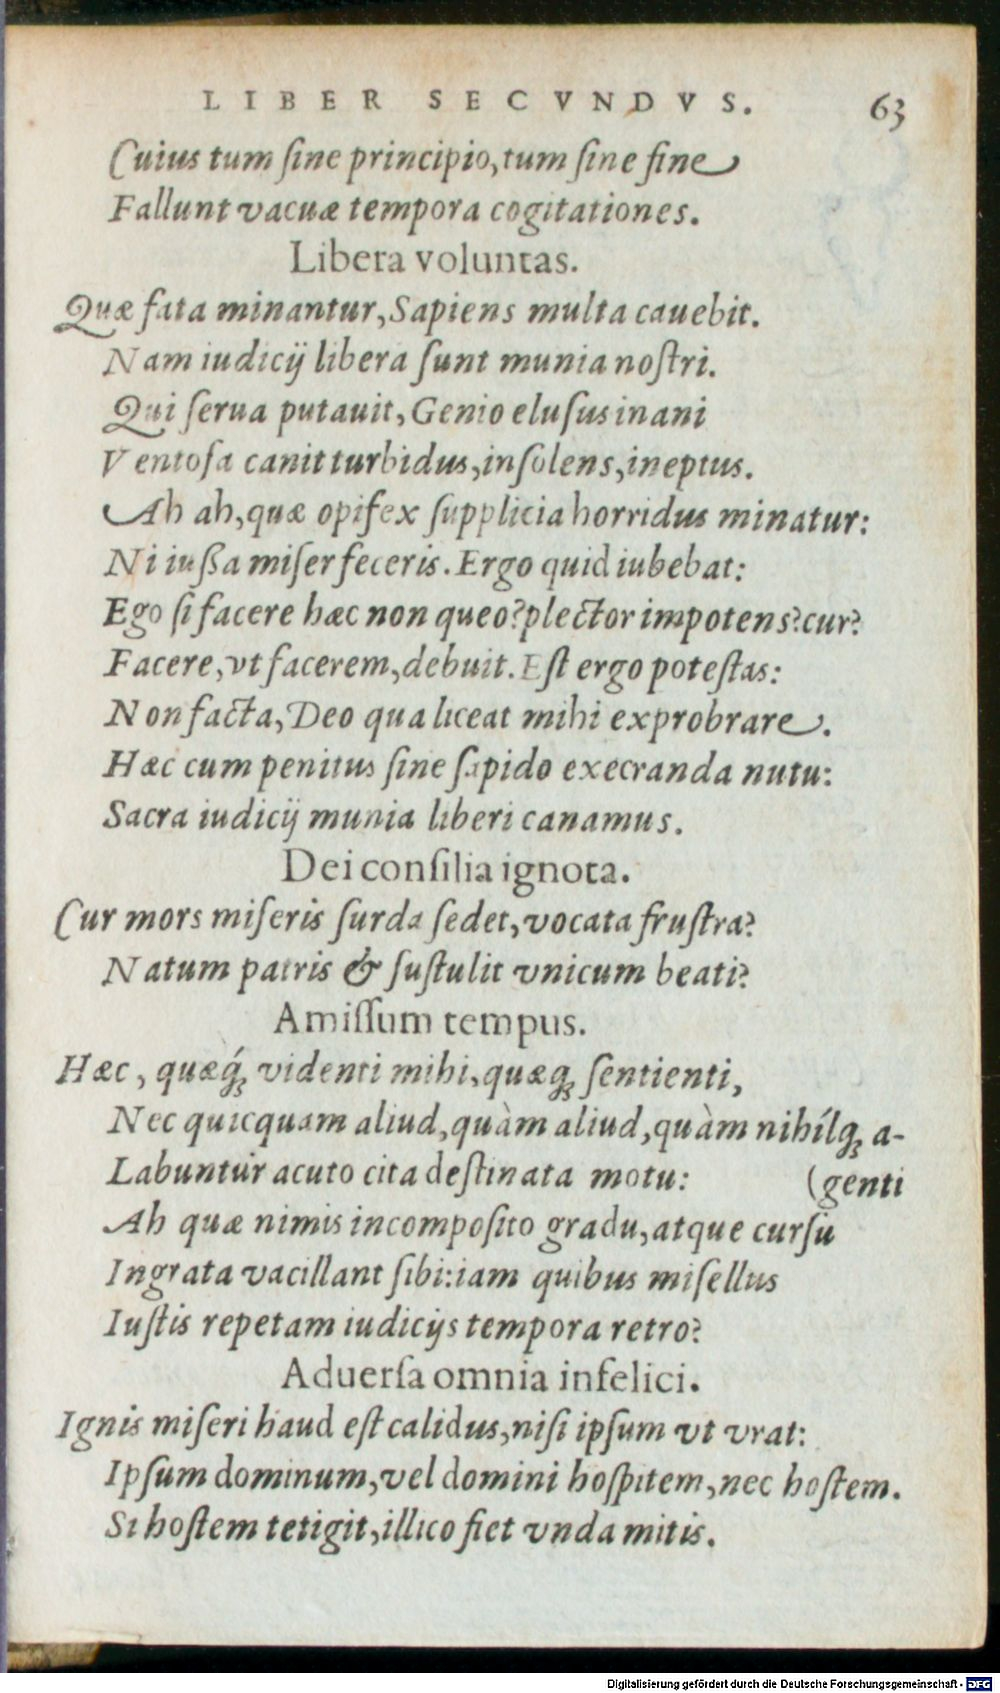 LIBER SECVNDVS. 63
Cuius tum ſine principio, tum ſine fine
Fallunt vacuæ tempora cogitationes.
Libera voluntas.
Quæ fata minantur, Sapiens multa cauebit.
Nam iudicij libera ſunt munia noſtri.
Qui ſerua putauit, Genio eluſus inani
Ventoſa canit turbidus, inſolens, ineptus.
Ah ah, quæ opifex ſupplicia horridus minatur:
Ni iußa miſer feceris. Ergo quid iubebat:
Ego ſi facere hæc non queo? plector impotens? cur?
Facere, vt facerem, debuit. Eſt ergo poteſtas:
Non facta, Deo qua liceat mihi exprobrare.
Hæc cum penitus ſine ſapido execranda nutu:
Sacra iudicij munia liberi canamus.
Dei conſilia ignota.
Cur mors miſeris ſurda ſedet, vocata fruſtra?
Natum patris & ſuſtulit vnicum beati?
Amiſſum tempus.
Hæc, quæq́; videnti mihi, quæq; ſentienti,
Nec quicquam aliud, quàm aliud, quàm nihílq; a-
Labuntur acuto cita deſtinata motu: (genti
Ah quæ nimis incompoſito gradu, atque curſu
Ingrata vacillant ſibi: iam quibus miſellus
Iuſtis repetam iudicijs tempora retro?
Aduerſa omnia infelici.
Ignis miſeri haud eſt calidus, niſi ipſum vt vrat:
Ipſum dominum, vel domini hoſpitem, nec hoſtem.
Si hoſtem tetigit, illico fiet vnda mitis.
Digitalisierung gefördert durch die Deutsche Forschungsgemeinschaft - DFG